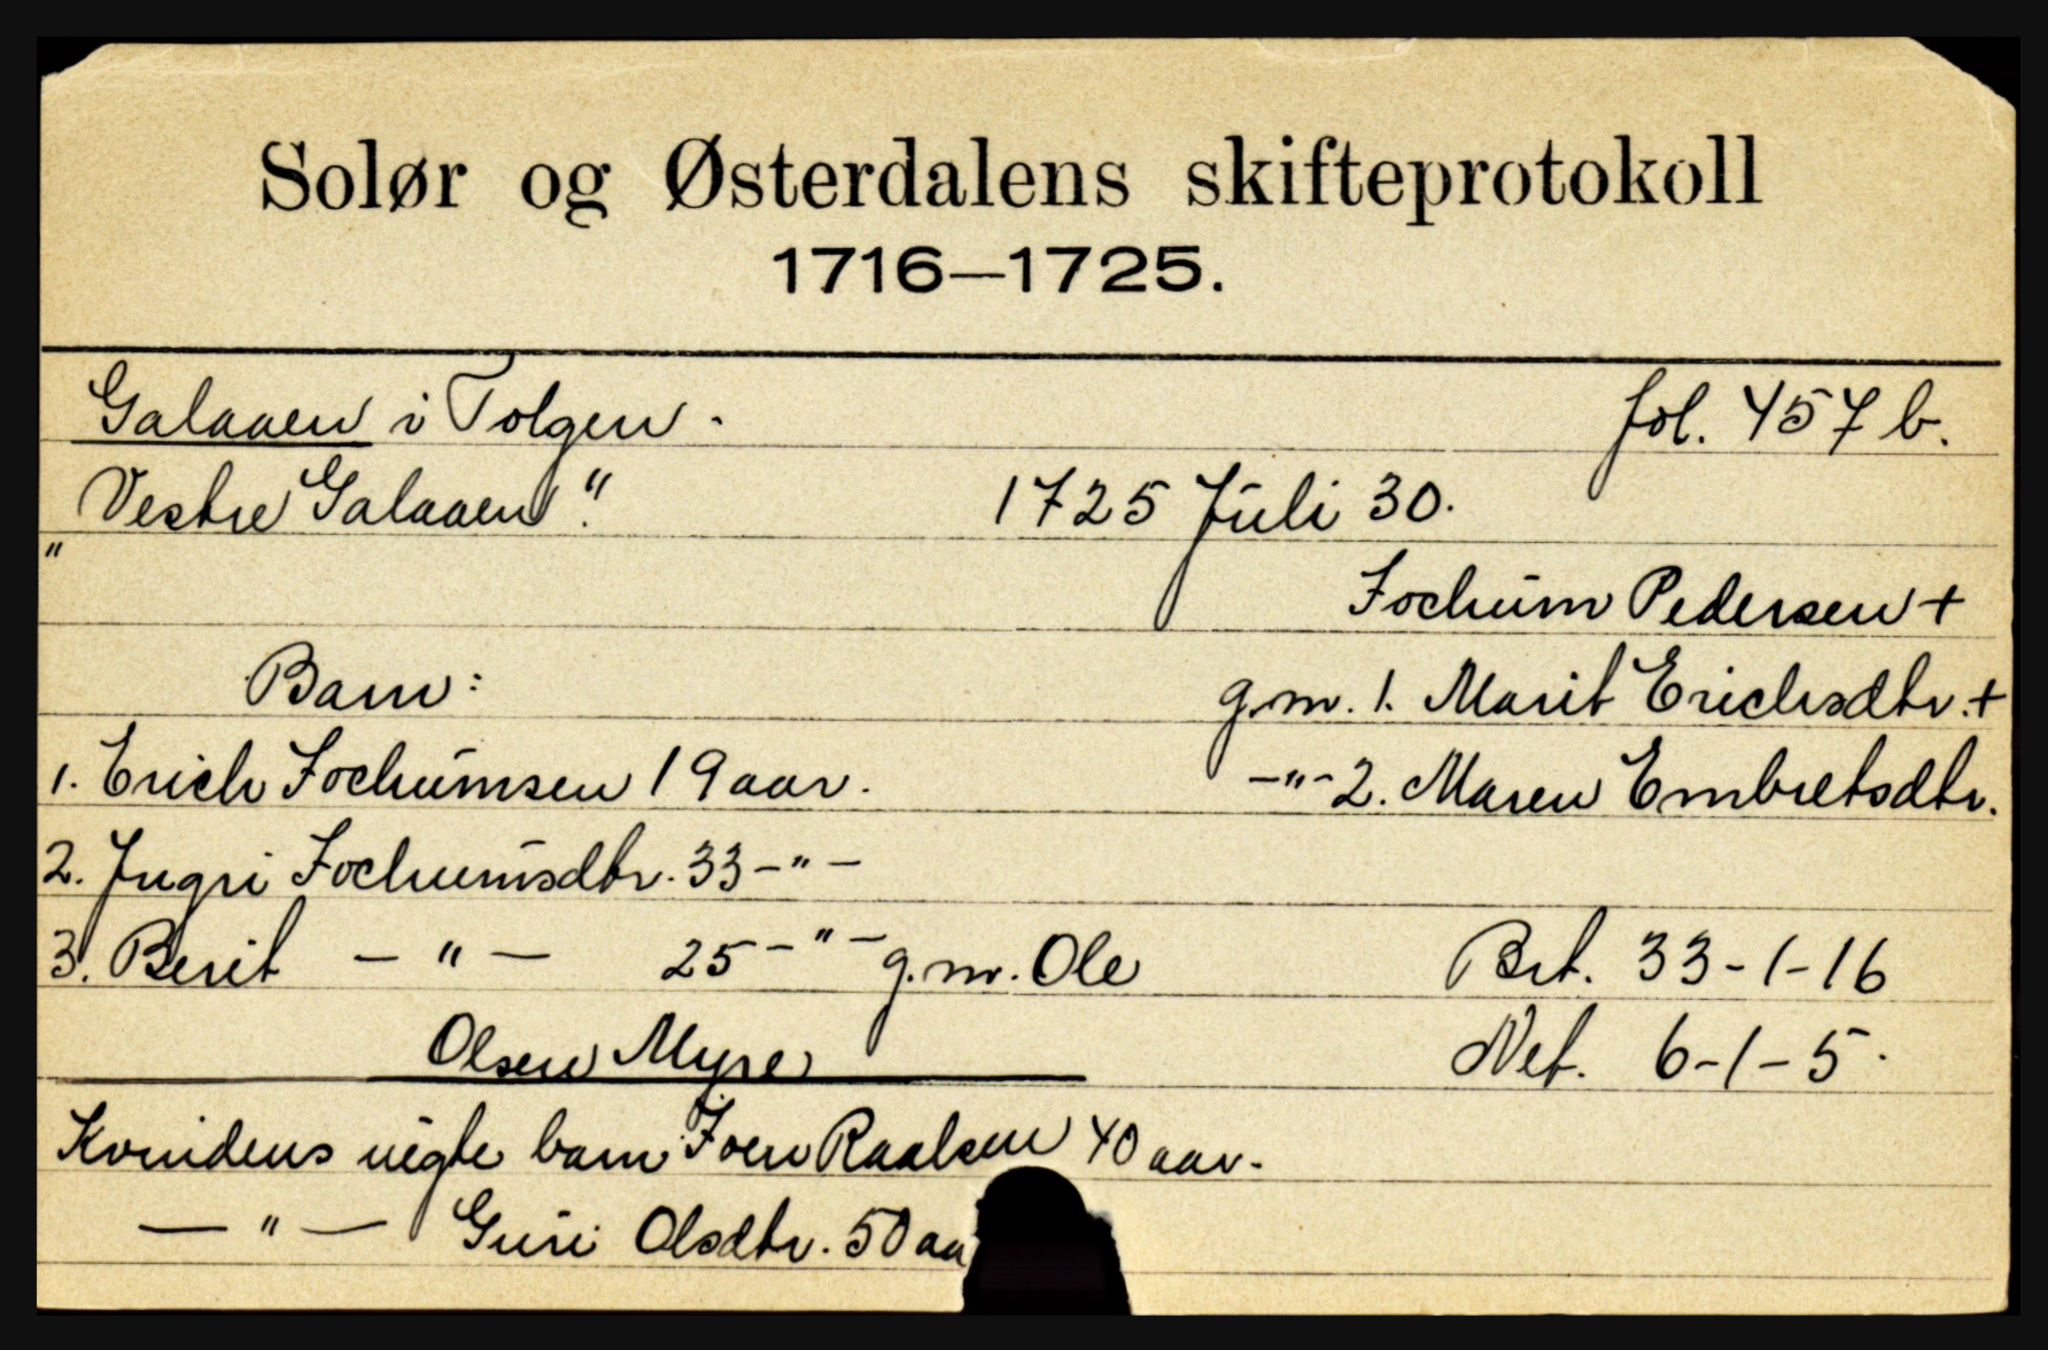 Solør og Østerdalens skifteprotokoll
1716—1725.
Galaaen i Tolgen. fol. 457 b.
"Vestre Galaaen". 1725 Juli 30.
Jochum Pedersen +
Barn: g.m. 1. Marit Erichsdtr. +
1. Erich Jochumsen 19 aar. -"- 2. Maren Embretsdtr.
2. Ingri Jochumsdtr. 33 -"-
3. Berit -"- 25 -"- g.m. Ole Brt. 33-1-16
Olsen Myre Net. 6-1-5.
Kvindens uegte barn: Joen Raalsen 40 aar.
-"- Guri Olsdtr. 50 aa